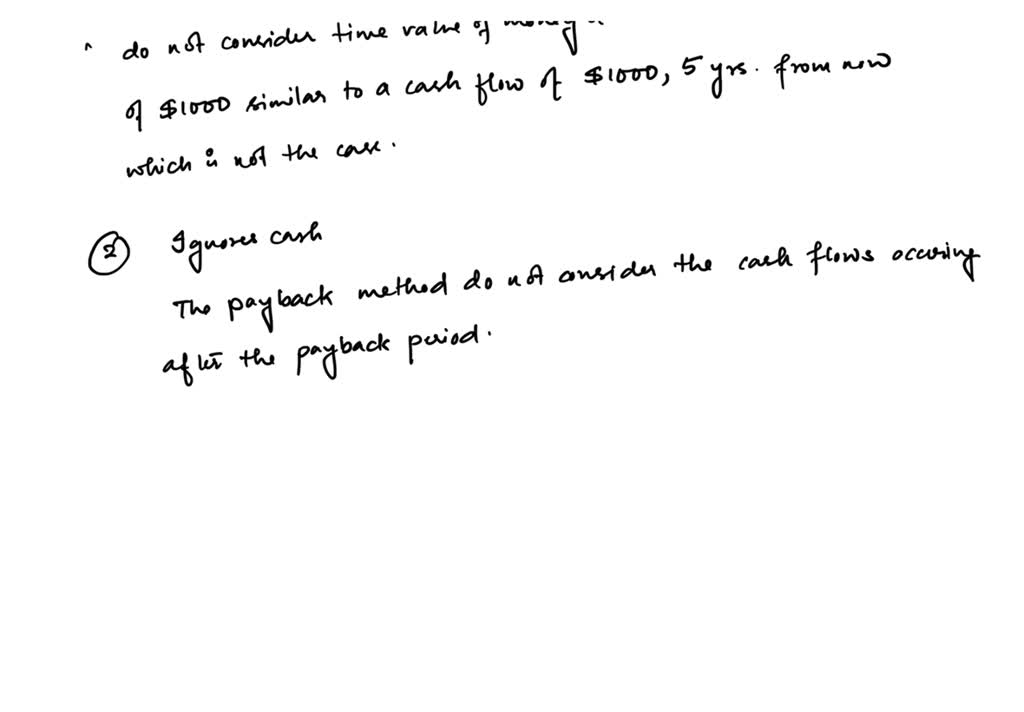 do not consider time value of money
of $1000 similar to a cash flow of $1000, 5 yrs. from now
which is not the case.
2 Ignores cash
The payback method do not consider the cash flows occuring
after the payback period.